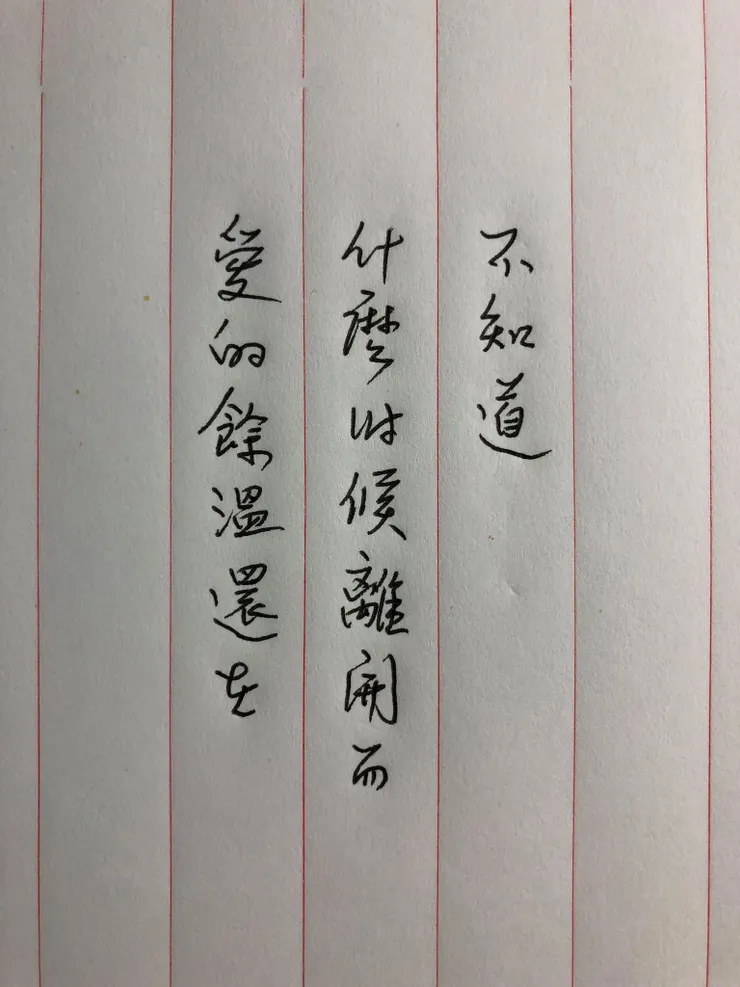 不知道
什麼时候離開而
愛的餘溫還在